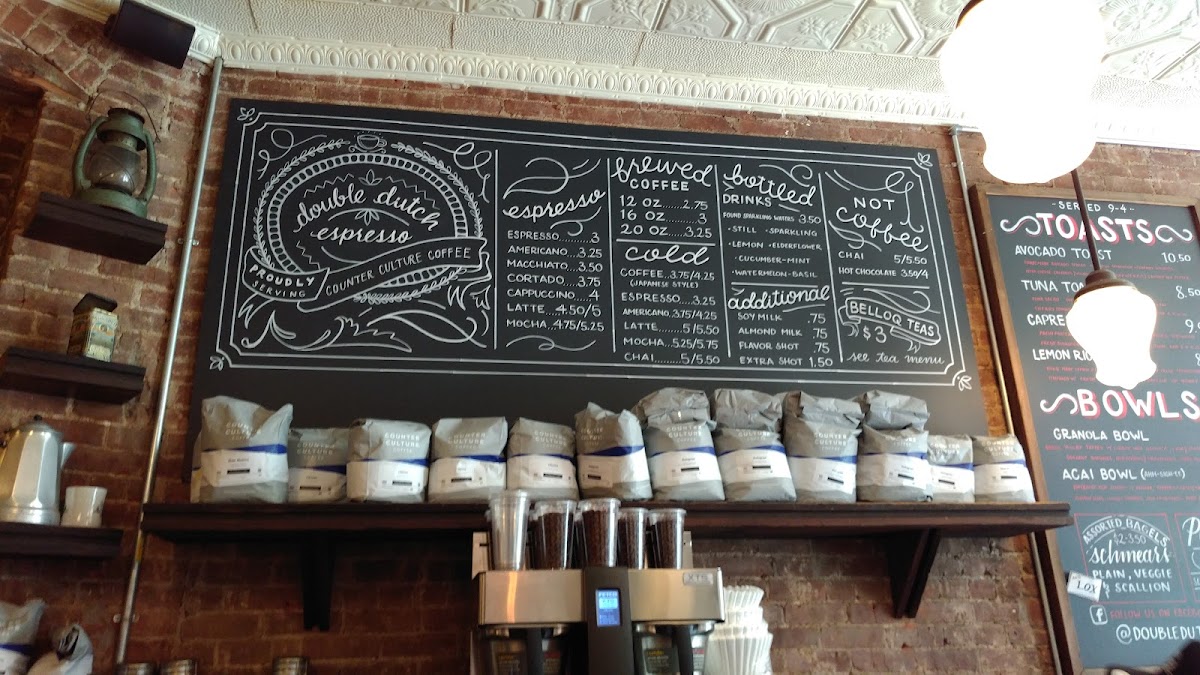 double dutch
espresso
PROUDLY
SERVING
COUNTER CULTURE COFFEE
espresso
ESPRESSO..........3
AMERICANO...3.25
MACCHIATO...3.50
CORTADO....3.75
CAPPUCCINO....4
LATTE...4.50/5
MOCHA..4.75/5.25
brewed
COFFEE
12 OZ......2.75
16 OZ........3
20 OZ....3.25
cold
COFFEE...3.75/4.25
(JAPANESE STYLE)
ESPRESSO....3.25
AMERICANO..3.75/4.25
LATTE......5/5.50
MOCHA...5.25/5.75
CHAI......5/5.50
bottled
DRINKS
FOUND SPARKLING WATERS 3.50
· STILL · SPARKLING
· LEMON · ELDERFLOWER
· CUCUMBER-MINT
· WATERMELON-BASIL
additional
SOY MILK .75
ALMOND MILK .75
FLAVOR SHOT .75
EXTRA SHOT 1.50
NOT
coffee
CHAI 5/5.50
HOT CHOCOLATE 3.50/4
BELLOQ TEAS
$3
see tea menu
- SERVED 9-4 -
TOASTS
AVOCADO TOAST 10.50
TUNA
CAPRE
LEMON RIC
BOWLS
GRANOLA BOWL
ACAI BOWL
ASSORTED BAGELS
$2-3.50
schmear
PLAIN, VEGGIE
SCALLION
FOLLOW US ON
@DOUBLEDUT
COUNTER
CULTURE
COUNTER
CULTURE
COUNTER
CULTURE
COUNTER
CULTURE
COUNTER
CULTURE